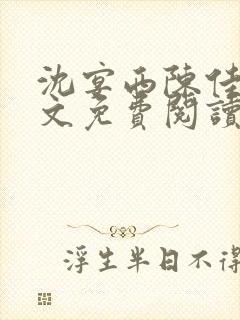 沈宴西陳佳
文免費閱讀
浮生半日不得